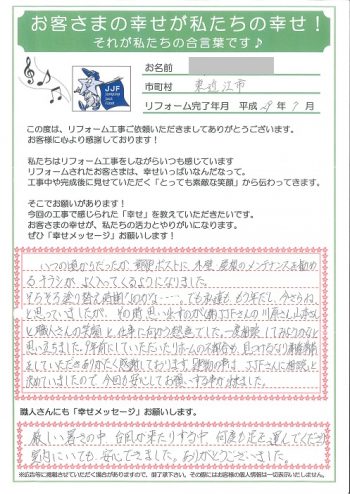 お客さまの幸せが私たちの幸せ！
それが私たちの合言葉です♪
JJF
お名前
市町村 東近江市
リフォーム完了年月 平成 29 年 9 月
この度は、リフォーム工事ご依頼いただきましてありがとうございます。
お客様に心より感謝しております！
私たちはリフォーム工事をしながらいつも感じています
リフォームされたお客さまは、幸せいっぱいなんだなって。
工事中や完成後に見せていただく「とっても素敵な笑顔」から伝わってきます。
そこでお願いがあります！
今回の工事で感じられた「幸せ」を教えていただきたいです。
お客さまの幸せが、私たちの活力とやりがいになります。
ぜひ「幸せメッセージ」お願いします！
いつの頃からだったか 郵便ポストに、外壁、屋根のメンテナンスを勧め
るチラシが よく入ってくるようになりました。
そろそろ塗り替え時期なのかな……、でも永年も もう年だし、今さらね
と思っていましたが、その時 思い出すのが(株)JJFさんの川原さん山本さん
と職人さんの笑顔と仕事に向かう姿勢でした。一度相談してみようかなと
思い立ちました。9年前にしていただいたリホームの不都合も 見つけるなり補修
をしていただきありがたく感謝しております。建物の事は JJFさんに相談と
決めていましたので 今回も安心してお願いする事が出来ました。
職人さんにも「幸せメッセージ」お願いします。
厳しい暑さの中、台風が来たりする中 何度も足を運んでくださり
室内にいても 安心できました。ありがとうございました。
※広告等に掲載させていただく場合がありますので、御了承下さい。その際にはお客様の個人情報は一切表示いたしません。